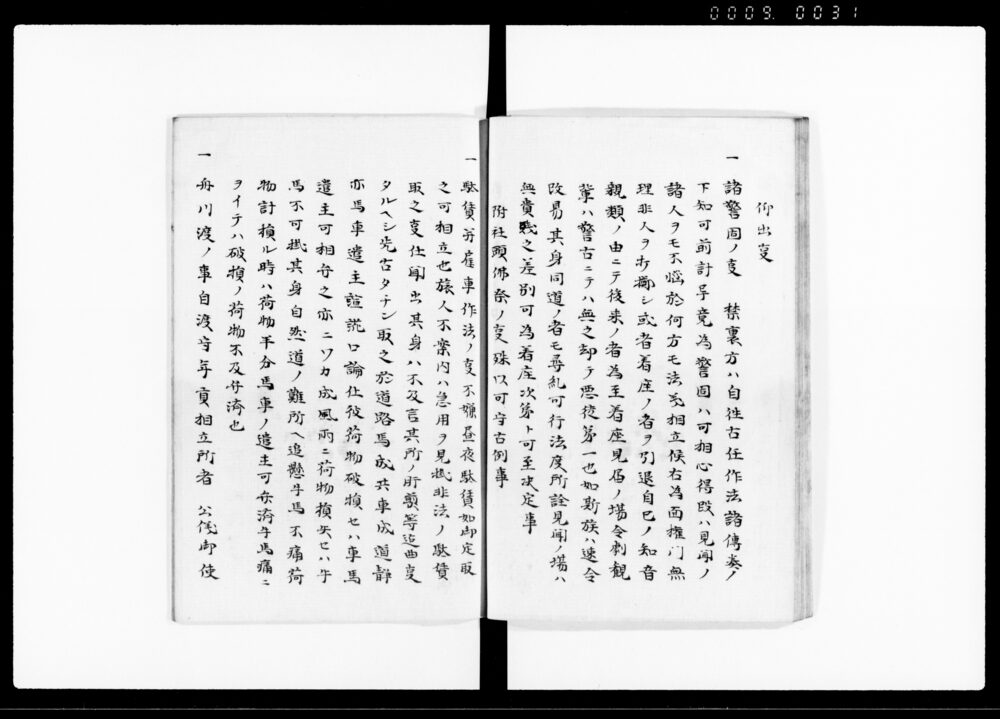 0009. 0031
仰出叓
一 諸警固ノ叓 禁裏方ハ自往古任作法諸傳奏ノ
下知可前計早竟為警固ハ可相心得段ハ見聞ノ
諸人ヲモ不悩於何方モ法式相立候右為面権門無
理非人ヲ打擲シ或者着座ノ者ヲ引退自己ノ知音
親類ノ由ニテ後来ノ者為至着座見届ノ場令刺観
輩ハ警古ニテハ無之却テ悪後第一也如斯族ハ速令
改易其身同道ノ者モ尋糺可行法度所詮見聞ノ場ハ
無貴賎之差別可為着座次第ト可至决定事
附社頭佛祭ノ叓殊以可守古例事
一 駄賃并雇車作法ノ叓不嫌昼夜駄賃如御定取
之可相立也旅人不案内ハ急用ヲ見掛非法ノ駄賃
取之叓仕聞出其身ハ不及言其所ノ肝煎等迄曲叓
タルヘシ先右タチン取之於道路馬成共車成道静
亦馬車遣主諠譊口論仕役荷物破損セハ車馬
遣主可相弁之亦ニワカ成風雨ニ荷物損失セハ牛
馬不可掛其身自然道ノ難所ヘ追懸牛馬不痛荷
物計損ル時ハ荷物半分馬車ノ遣主可弁済牛馬痛ニ
ヲイテハ破損ノ荷物不及弁済也
一 舟川渡ノ事自渡守年貢相立所者 公儀御使